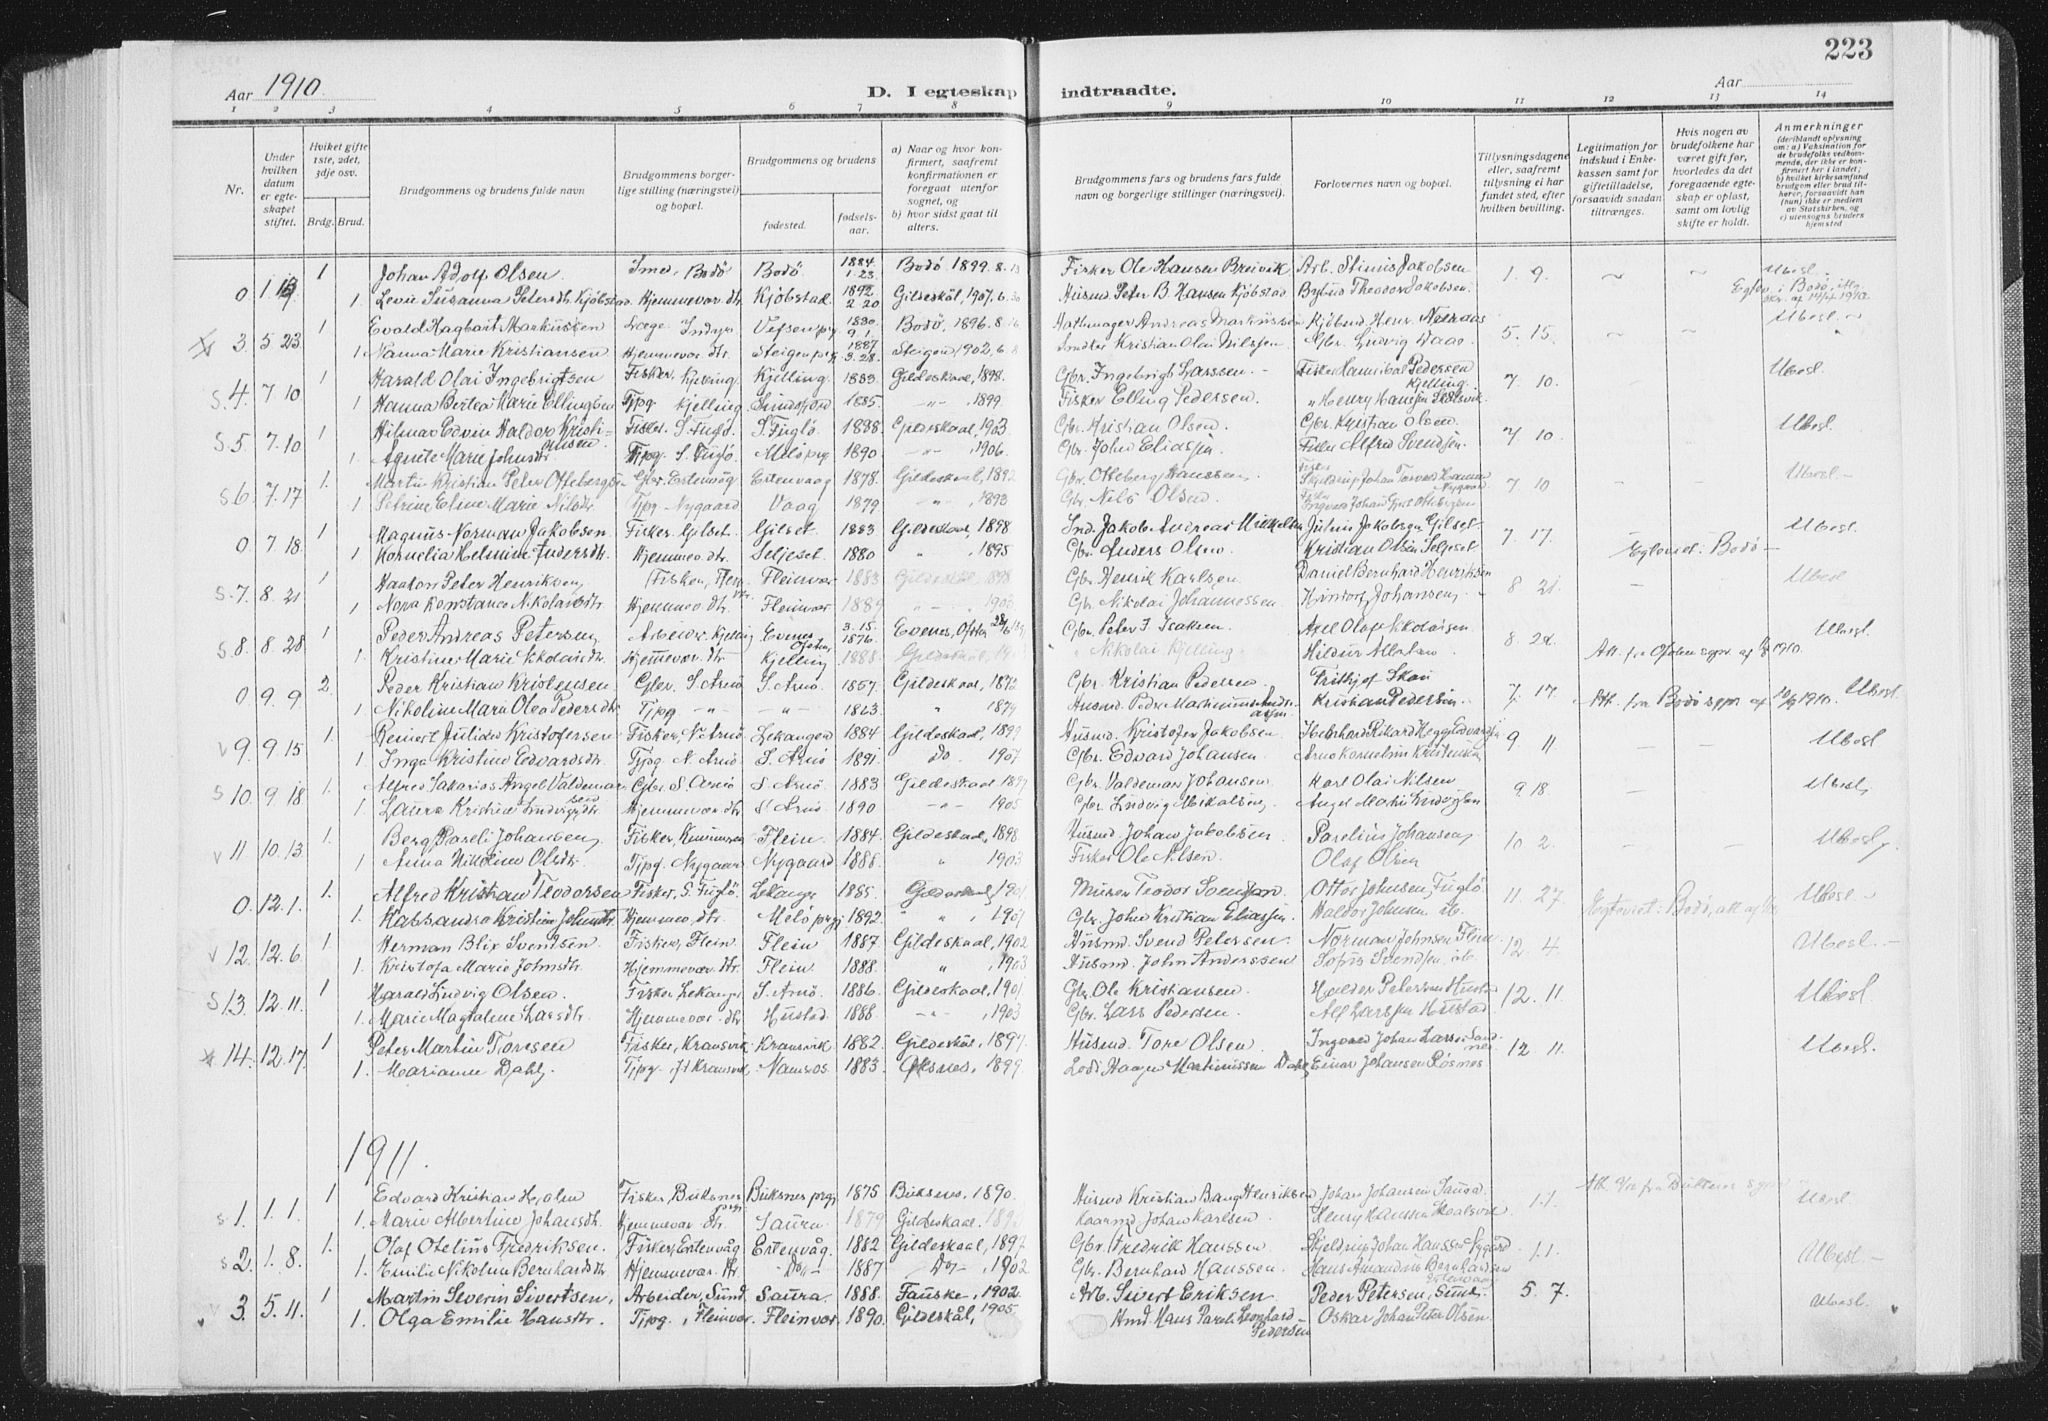 223
Aar 1910. D. I egteskap indtraadte. Aar
1 2 3 4 5 6 7 8 9 10 11 12 13 14
Nr.
Under hvilken datum er egteskapet stiftet.
Hviket gifte 1ste, 2det, 3dje osv.
Brdg. Brud.
Brudgommens og brudens fulde navn
Brudgommens borgerlige stilling (næringsvei) og bopæl.
Brudgommens og brudens
fødested.
fødselsaar.
a) Naar og hvor konfirmert, saafremt konfirmationen er foregaat utenfor sognet, og
b) hvor sidst gaat til alters.
Brudgommens fars og brudens fars fulde navn og borgerlige stillinger (næringsvei).
Forlovernes navn og bopæl.
Tillysningsdagene eller, saafremt tillysning ei har fundet sted, efter hvilken bevilling.
Legitimation for indskud i Enkekassen samt for giftetilladelse, forsaavidt saadan tiltrænges.
Hvis nogen av brudefolkene har været gift før, hvorledes da det foregaaende egteskap er opløst, samt om lovlig skifte er holdt.
Anmerkninger
(deriblandt oplysning om: a) Vaksination for de brudefolks vedkommende, der ikke er konfirmert her i landet; b) hvilket kirkesamfund brudgom eller brud tilhører, forsaavidt han (hun) ikke er medlem av Statskirken, og c) utensogns bruders hjemsted
1 Johan Adolf Olsen Smed, Bodö Bodö 1884 1.23 Bodö 1899. 8. Fisker Ole Hansen Breivik Arb. Stinius Jakobsen 1. 9. Ubesl.
0 1. Levie Susanna Petersdtr. Kjöbstad. Hjemmevær. dtr. Kjöbstad. 1892 2 20 Gildeskål, 1907. 6. Husmd Peter B. Hansen Kjöbstad Bybud Theodor Jakobsen.
3. 5 23 1 Evald Hagbart Markussen Læge Vefsen prg 1880 9. 1. Bodö, 1896. 8. Andreas Markussen Kjöbmd Henr. 5. 15. Ubesl.
1. Nanna Marie Kristiansen Hjemmevær. dtr. Steigen prg 1887 3. 28. Steigen 1902. 6. Kristian Olai Nilssen Gbr. Ludvig Daae.
S. 4. 7 10 1 Harald Olai Ingebrigtsen Fisker, Kjelling Kjelling 1883 Gildeskaal, 1898. Gbr. Ingebrigt Larssen. Fisker Hannibal Pedersen Kjelling. 7. 10. Ubesl.
1 Hanna Bertea Marie Ellingsen Tjpg Kjelling 1885. -"- , 1899. Fisker Elling Pedersen. " Henry Hansen Skålsvik
S. 5. 7. 10 1 Hilmar Edvin Haldor Kristiansen Fisker. S. Fuglö. S. Fuglö 1888 Gildeskaal, 1903. Gbr. Kristian Olsen. Gbr. Kristian Olsen. 7 10. Ubesl.
1. Agnete Marie Johnsdtr. Tjpg. S. Fuglö Melö prg 1890 -"- , 1906. Gbr. John Eliassen. Fisker Alfred Svendsen.
S. 6. 7. 17 1. Martin Kristian Peter Ottebergsen Gbr. Ertenvåg Ertenvaag 1878. Gildeskaal, 1892 Gbr. Otteberg Hanssen. Fisker Skjeldrup Johan Torvald Hansen Nygaard. 7 10 Ubesl.
1. Petrine Eline Marie Nilsdtr. Tjpg. Nygaard Vaag 1879 " , 1893 Gbr. Nils Olsen. Fisker Ingvard Johan
0 7 18. 1 Magnus Norman Jakobsen Fisker. Gilset Gilset. 1883 Gildeskaal, 1898 Jakob Andreas Mikkelsen Julius Jakobsen Gilset 7. 17. Ubesl.
1 Kornelia Helmine Andersdtr. Hjemmev. dtr. Seljeset 1880 " , 1895 Gbr. Anders Olsen. Kristian Olsen Seljeset Egtoviet: Bodö
S. 7. 8. 21 1 Haakon Peter Henriksen Fisker, Fleinvær 1883 Gildeskål, 1898 Gbr. Henrik Karlsen Daniel Bernhard Henriksen 8 21. Ubesl
1 Nora Konstance Nikolaisdtr. Hjemmev. dtr. Fleinvær 1889 -"- , 1903. Gbr. Nikolai Johannessen Hindorf Johansen
S. 8. 8. 28 1 Peder Andreas Petersen Arbeider Kjelling Evenes Ofoten 3. 15. 1876. Evenes, Ofoten Gbr. Peter J. Isaksen Axel Olaf Nikolaisen 8 21. Ubesl.
1. Kristine Marie Nikolaisdtr. Hjemmevær. dtr. Kjelling 1888. Gildeskål, " Nikolai Kjelling Hildur
0 9 9 2. Peder Kristian Kristensen Gbr. S. Arnö S. Arnö 1857. Gildeskaal, 1872 Gbr. Kristian Pedersen. Fritjof Skau 7. 17. Ubesl.
1. Nikoline Marie Olea Pedersdtr. Tjpg -"- -"- 1863. " 1879 Husmd. Peder Martinus Kristian Pedersen Att. fra Bodö sgpr. af 1910.
V 9. 9. 15 1. Reinert Julius Kristofersen Fisker, N. Arnö Lekanger 1884 Gildeskaal, 1899 Husmd. Kristofer Jakobsen. Eberhard Rikard Hegg Edvardsen 9 11. Ubesl
1. Inga Kristine Edvardsdtr. Tjpg. N. Arnö S. Arnö 1891. Do. 1907 Gbr. Edvard Johansen. Arne Kornelius Kristensen
S 10. 9. 18 1. Alfred Sakarias Angel Valdemarsen Gbr. S. Arnö S. Arnö 1883 Gildeskaal, 1897 Gbr. Valdemar Johansen Karl Olai Nilsen 9. 18. Ubesl.
1. Laura Kristine Ludvigsdtr. Hjemmevær. dtr. S. Arnö 1890 -"- 1905 Gbr. Ludvig Mikalsen Angel Ludvigsen
V 11 10. 13 1. Berg Pareli Johansen Fisker, Flein 1884. Gildeskaal, 1898 Husmd. Johan Jakobsen Parelius Johansen 10 2. Ubesl.
1 Anna Nikoline Olsdtr. Tjpg. Nygaard Nygaard 1888. " 1903 Fisker Ole Nilsen. Olaf Olsen
0. 12. 1. 1. Alfred Kristian Teodorsen Fisker, S. Fuglö Lekanger 1885. Gildeskaal, 1901 Murer Teodor Svendsen Ottos Johnsen, Fuglö. 11. 27. Ubesl.
1. Kassandra Kristine Johnsdtr. Hjemmev. dtr. Melö prg. 1892 " " , 1907 Gbr. John Kristian Eliassen. Haldor Johnsen ib. Egtoviet: Bodö
V 12. 12. 6 1. Herman Blix Svendsen Fisker, Flein Flein 1887 Gildeskaal, 1902 Husmd. Svend Petersen. Norman Johnsen Flein 12. 4. Ubesl.
1. Kristofa Marie Johnsdtr. Hjemmevær. dtr. Flein. 1888. " , 1903 Husmd. John Anderssen Sofus Svendsen, ib.
S 13. 12. 11. 1 Harald Ludvig Olsen. Fisker Lekanger S. Arnö. 1886. Gildeskaal, 1901 Gbr. Ole Kristiansen Halder Petersen Hustad 12. 11. Ubesl.
1. Marie Magdalene Larsdtr. Hjemmevær. dtr. Hustad 1888 -"- , 1903 Gbr. Lars Pedersen. Alf Larssen Hustad.
14. 12. 17. 1 Peter Martin Toresen Fisker, Kransvik Kransvik. 1882. Gildeskål, 1897 Husmd. Tore Olsen. Ingvard Johan Larssen Sandnes. 12 11. Ubesl.
1. Marianne Dahl. Tjpg. Kransvik Namsos 1883 1899. Haagen Martinussen Dahl Einar Johansen Røsnes
1911.
S 1. 1. 1. 1 Edvard Kristian Holm Fisker Buksnes Buksnes prg. 1875 Buksnes, 1890. Husmd Kristian Bang Henriksen Johan Johansen Saura. 1.1. Ubesl.
1. Marie Albertine Johansdtr. Hjemmevær. dtr. Saura 1879 Gildeskaal, Kaarmd. Johan Karlsen Henry Hanssen Skaalsvik
S 2. 1. 8. 1. Olaf Otelius Fredriksen. Fisker, Ertenvåg Ertenvåg. 1882 Gildeskaal, 1897 Gbr. Fredrik Hanssen Skjeldrup Johan Hanssen Nygård 1.1. Ubesl.
1. Emilie Nikoline Bernhardsdtr. Hjemmevær. dtr. -Do- 1887 -Do- , 1902 Gbr. Bernhard Hanssen Hans Amandus Bernhardsen Ertenvaag
V 3. 5. 11. 1 Martin Severin Sivertsen, Arbeider, Sund Saura. 1888. Fauske, 1902. Arb. Sivert Eriksen Peder Petersen, Sund. 5. 7. Ubesl.
1. Olga Emilie Hansdtr. Tjpg. Fleinvær. Fleinvær 1890. Gildeskål, 1905. Hmd. Hans Pareli Leonhard Pedersen Oskar Johan Peter Olsen